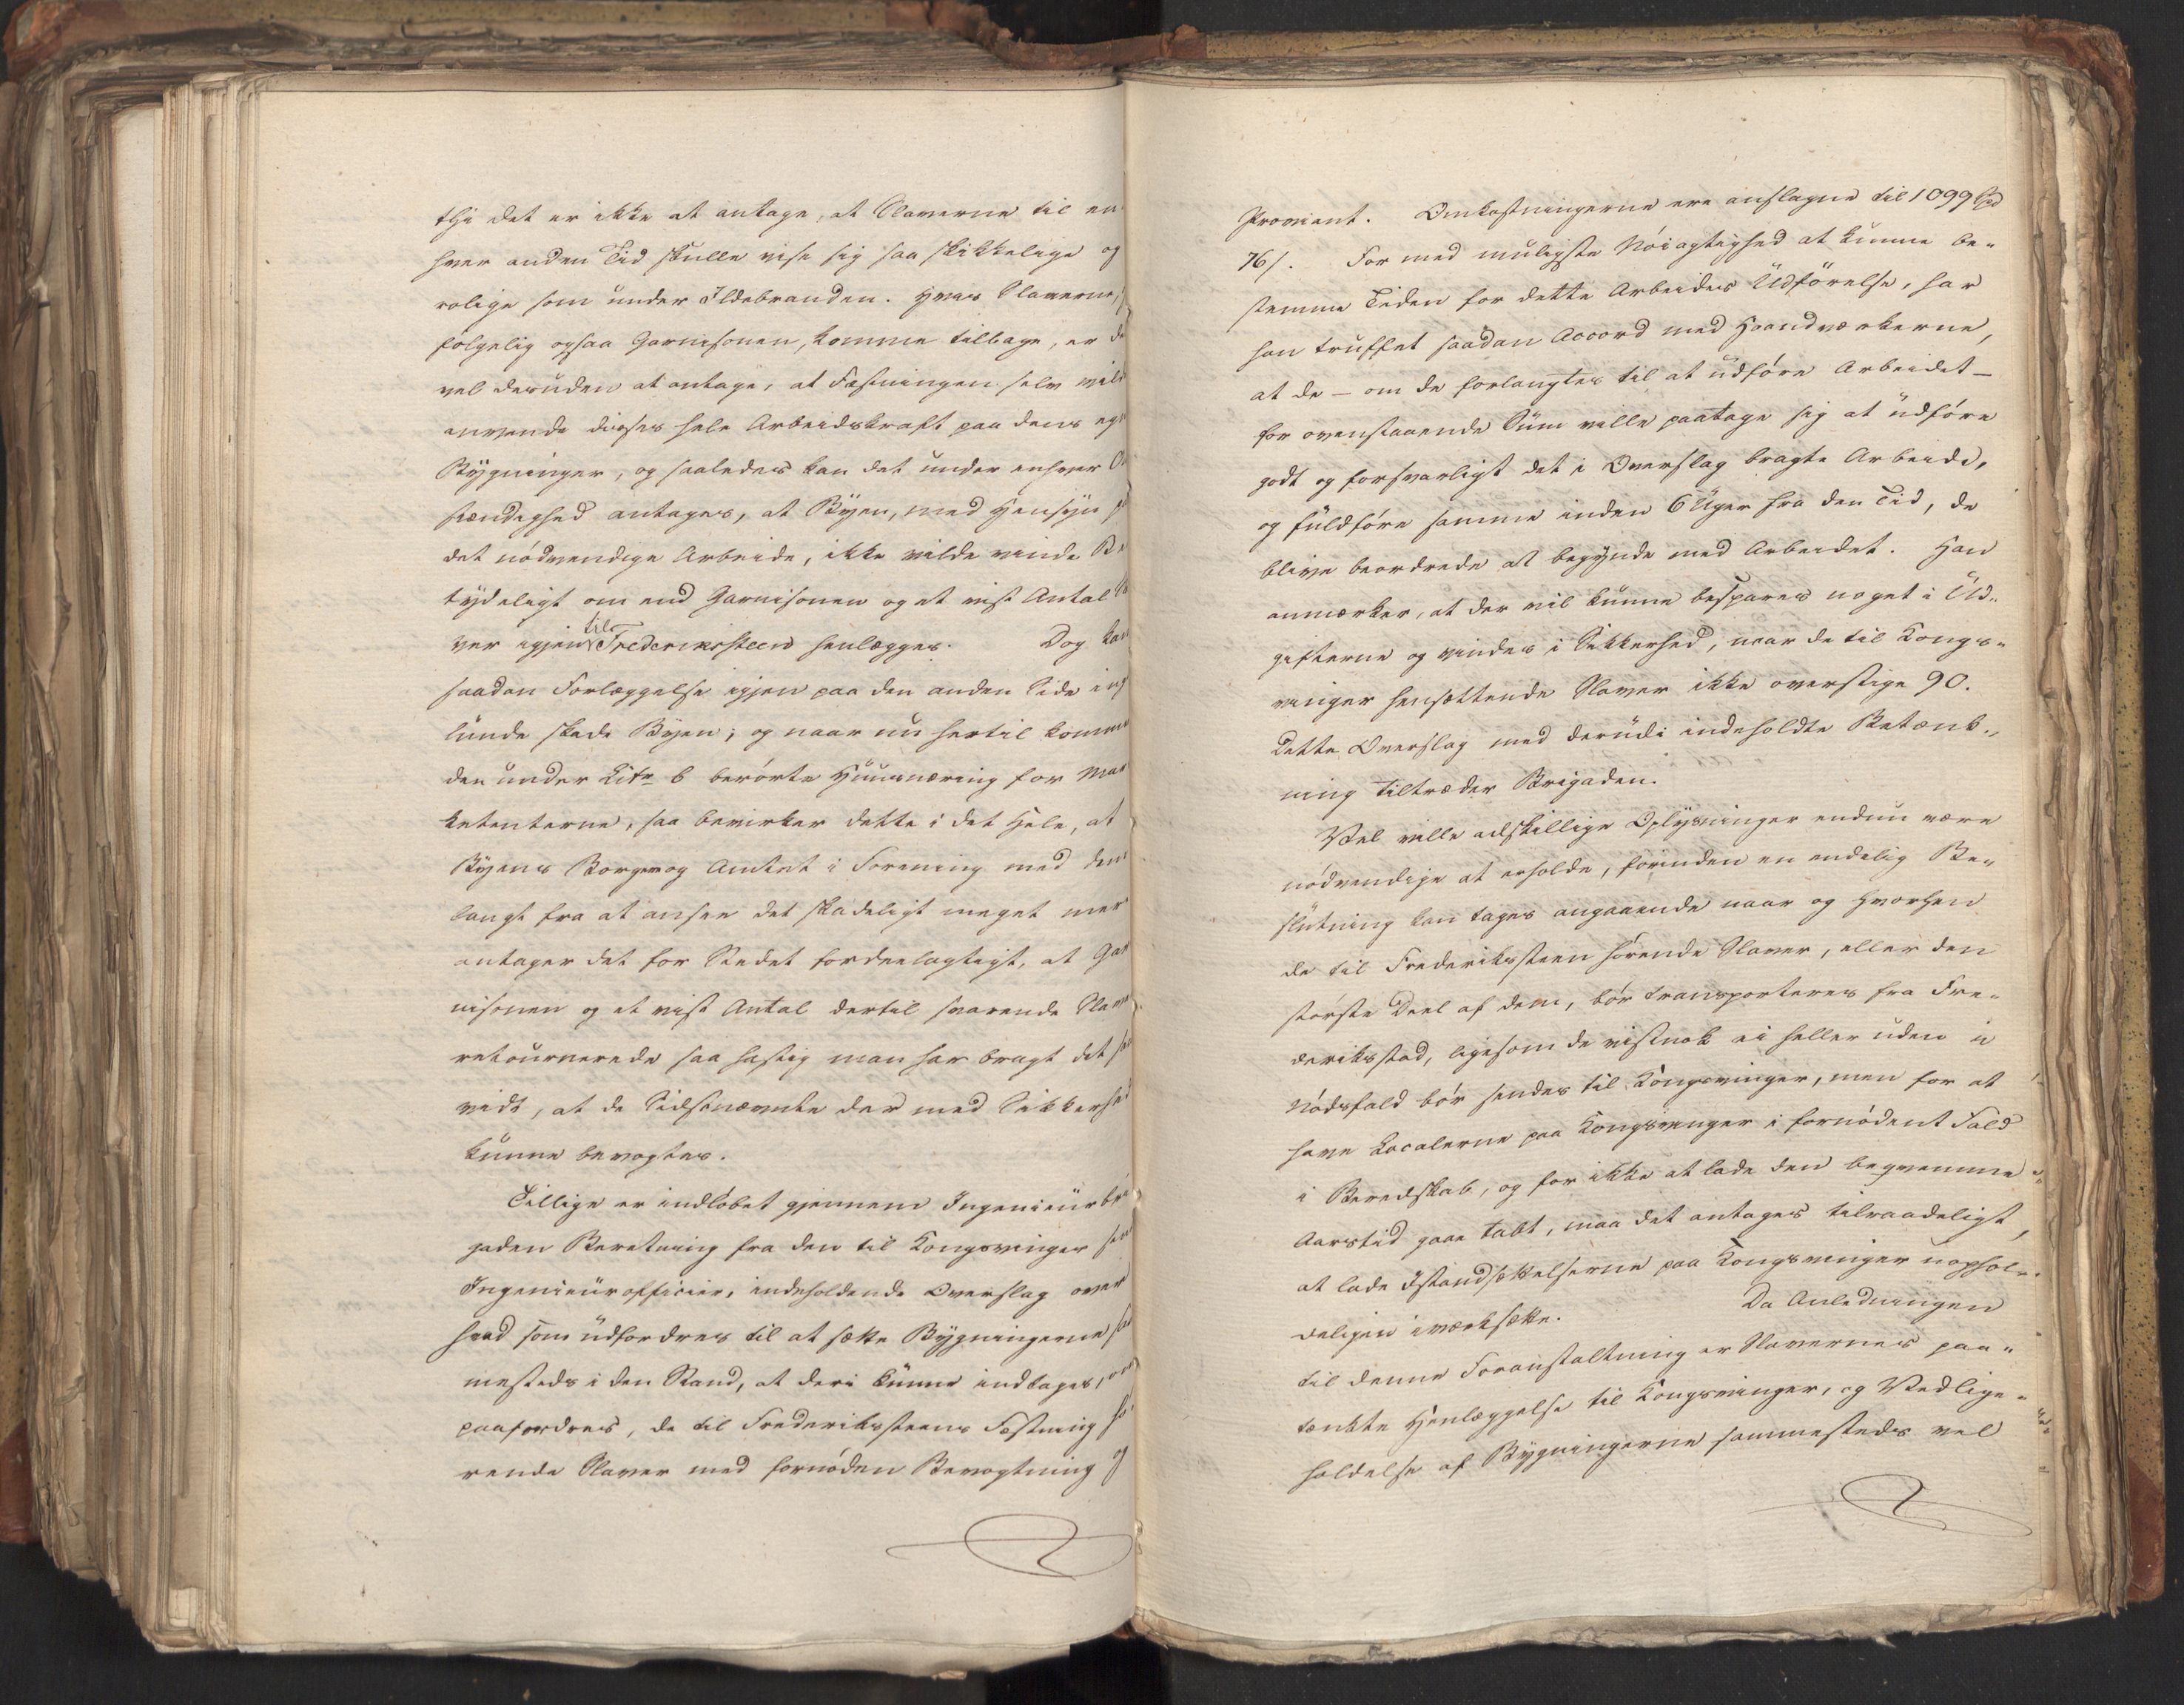 thi det er ikke at antage, at Slaverne til en
hver anden Tid skulle vise sig saa skikkelige og
rolige som under Ildebranden. Hvis Slaverne,
følgelig ogsaa Garnisonen, komme tilbage, er de
vel desuden at antage, at Fæstningen selv vil
anvende disses hele Arbeidskraft paa dens eg
Bygninger, og saaledes kan det under enhver O
stændighed antages, at Byen, med Hensyn p
det nødvendige Arbeide, ikke vilde vinde Be
tydeligt om end Garnisonen og et vist Antal
ver igjen til Frederiksteen henlægges. Dog kan
saadan Forlæggelse igjen paa den anden Side in
lunde skade Byen; og naar nu hertil komme
den under Litr b berørte Huusnæring for Mar
ketenterne, saa bevirker dette i det Hele, at
Byens Borgere og Amtet i Forening med dem
langt fra at ansee det skadeligt meget mer
antager det for Stedet fordeelagtigt, at Gar
nisonen og et vist Antal dertil svarende Slave
retournerede saa hastig man har bragt det saa
vidt, at de Sidstnævnte der med Sikkerhed
kunne bevogtes.
Tillige er indløbet gjennem Ingenieurbri
gaden Beretning fra den til Kongsvinger sen
Ingenieurofficier, indeholdende Overslag over
hvad som udfordres til at sætte Bygningerne sa
mesteds i den Stand, at deri kunne indtages, om
paafordres, de til Frederikssteens Fæstning hø
rende Slaver med fornøden Bevogtning og
Proviant. Omkostningerne ere anslagne til 1099 Spd
76/. For med muligste Nøiagtighed at kunne be-
stemme Tiden for dette Arbeides Udførelse, har
han truffet saadan Accord med Haandværkerne,
at de - om de forlangtes til at udføre Arbeidet -
for ovenstaaende Sum ville paatage sig at udføre
godt og forsvarligt det i Overslag bragte Arbeide,
og fuldføre samme inden 6 Uger fra den Tid, de
blive beordrede at begynde med Arbeidet. Han
anmærker, at der vil kunne bespares noget i Ud-
gifterne og vindes i Sikkerhed, naar de til Kongs-
vinger hensættende Slaver ikke overstige 90.
Dette Overslag med derudi indeholdte Betænk-
ning tiltræder Brigaden.
Vel ville adskillige Oplysninger endnu være
nødvendige at erholde, forinden en endelig Be-
slutning kan tages angaaende naar og hvorhen
de til Frederikssteen hørende Slaver, eller den
største Deel af dem, bør transporteres fra Fre-
deriksstad, ligesom de vistnok ei heller uden i
Nødsfald bør sendes til Kongsvinger, men for at
have Localerne paa Kongsvinger i fornødent Fald
i Beredskab, og for ikke at lade den beqvemme
Aarstid gaae tabt, maa det antages tilraadeligt,
at lade Istandsættelserne paa Kongsvinger uophol-
deligen iværksætte. Da Anledningen
til denne Foranstaltning er Slavernes paa-
tænkte Henlæggelse til Kongsvinger, og Vedlige-
holdelse af Bygningerne sammesteds vel